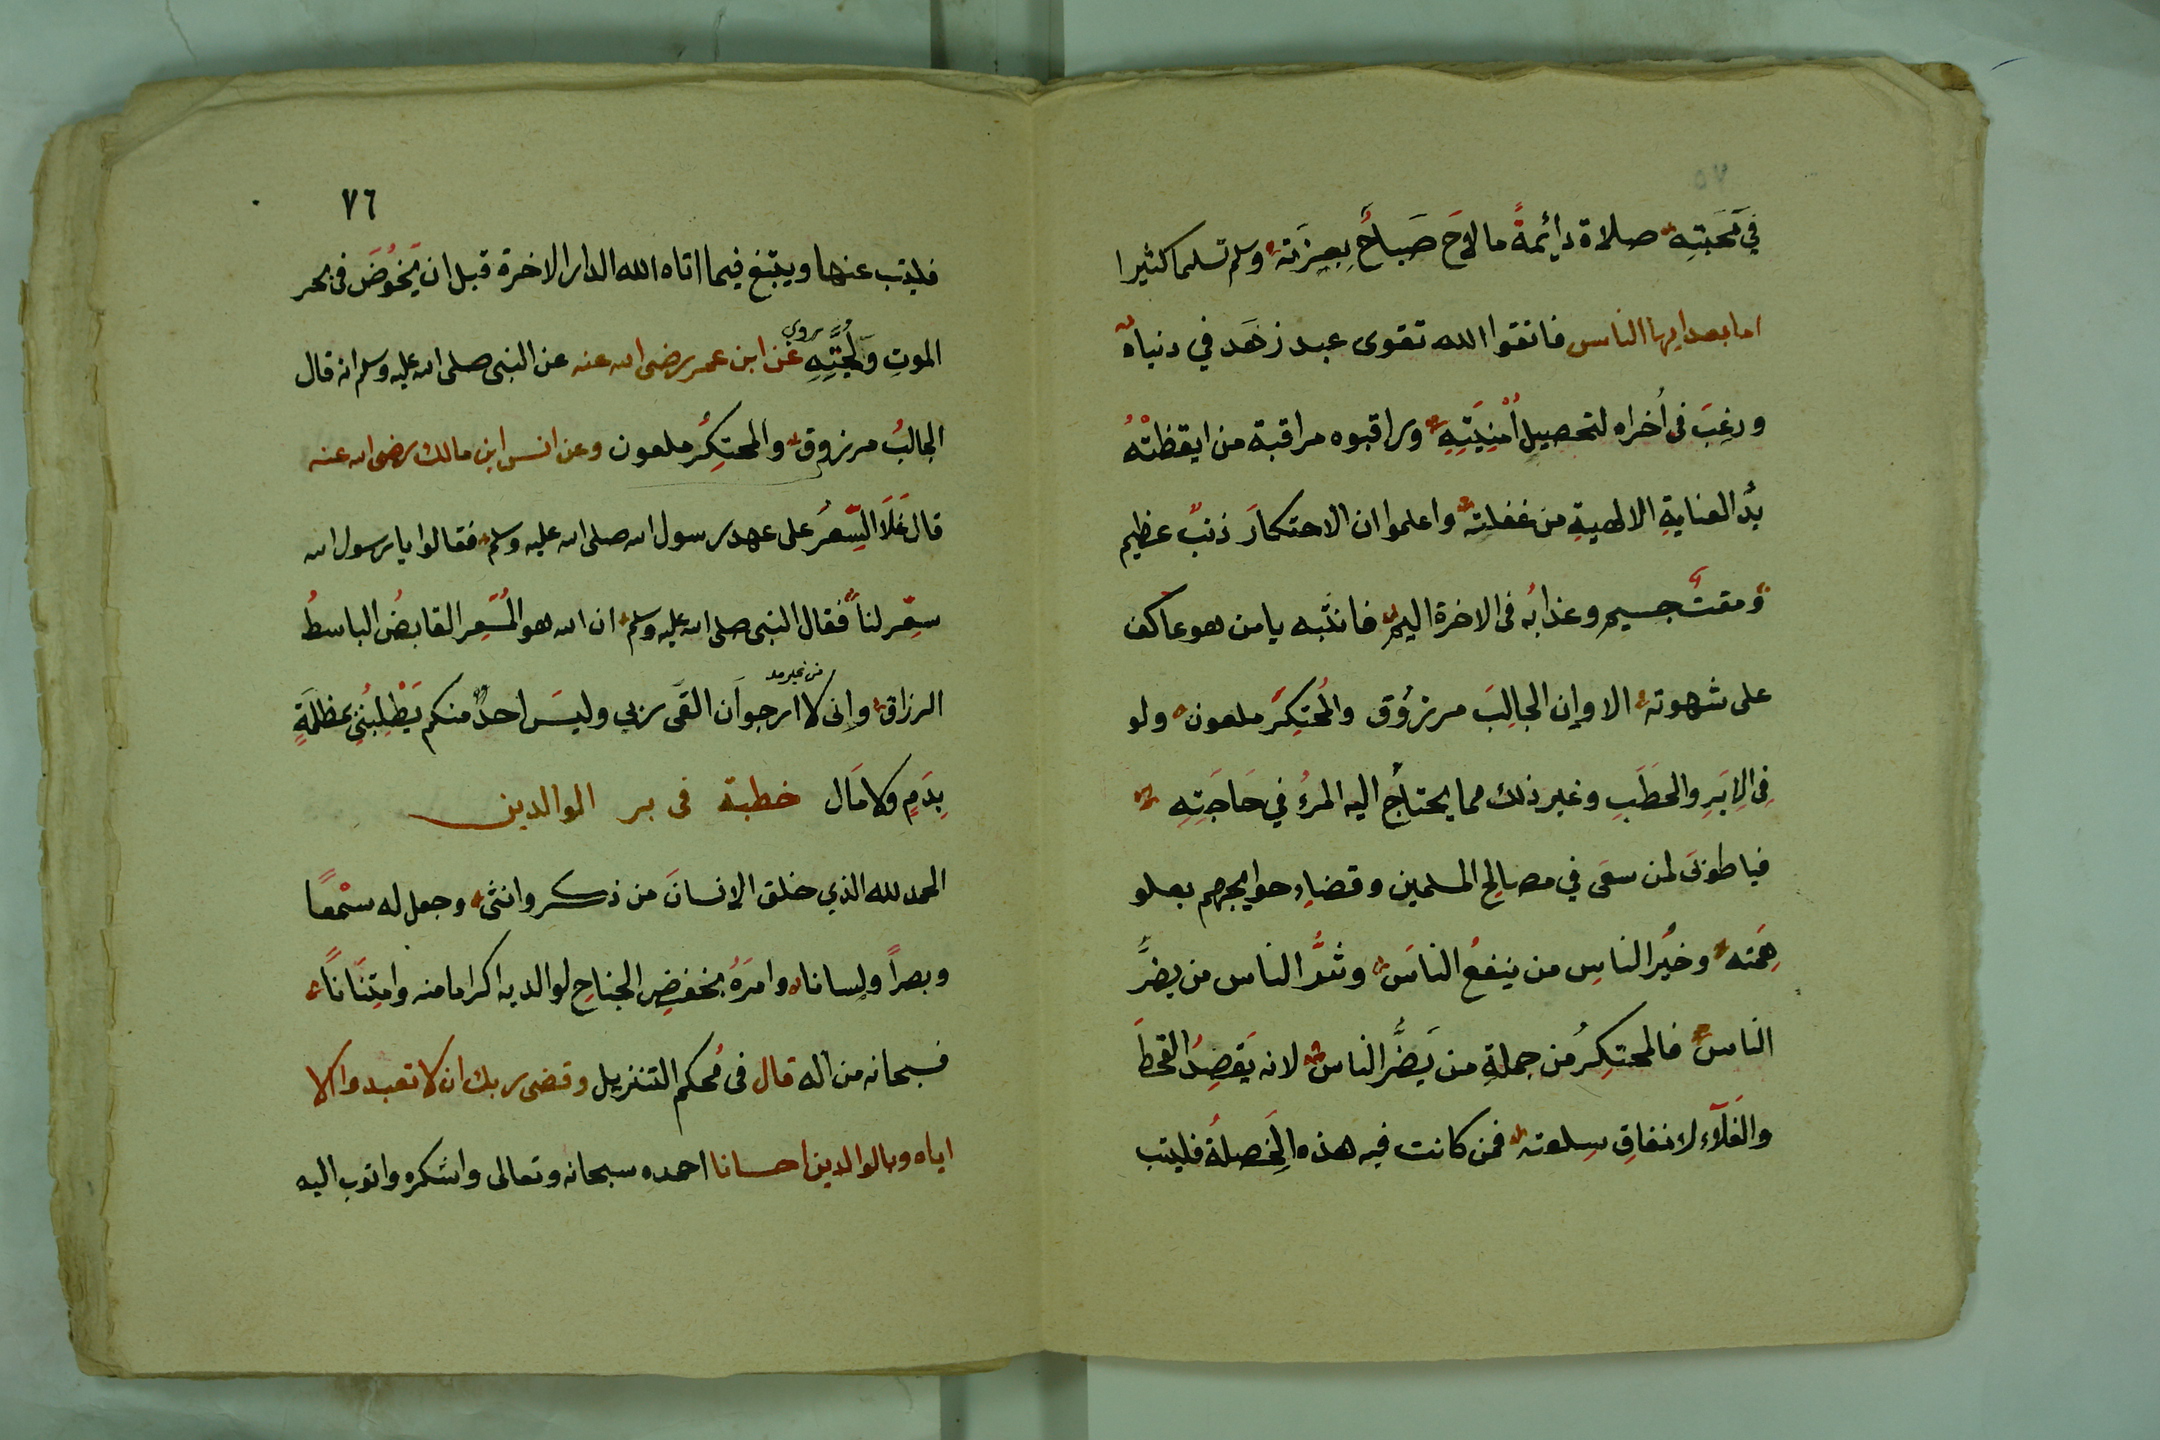 في مَحَبَتِهِ صلاة دائمةً ما لاحَ صَباحٌ بِعِزَتهِ وسلم تسلما كثيرا
اما بعد ايها الناس فاتقوا الله تقوى عبد زهَد في دنياه
ورغِبَ فى اُخراه لتحصيل اُمْنِيَتِهِ وراقبوه مراقبة من ايقظتْهُ
يدُ العنايةِ الالهيةِ من غفلته واعلموا ان الاحتكارَ ذنبٌ عظيم
ومقتٌ جسيم وعذابُه فى الاخرة اليم فانتبه يا من هو عاكف
على شهوته الا وإن الجالِبَ مرزوُق والمُحتكِرَ ملعون ولو
فِى الاِبَرِ والحَطَبِ وغير ذلك مما يحتاجُ اليه المرءُ في حَاجَتِهِ
فيا طوبَى لمن سعَى في مصالِح المسلمين وقضاءِ حوايجهم بعلو
هِمَته وخيُر الناسِ من ينفعُ الناسَ وشرُّ الناس من يضرُّ
الناسَ فالمحتكِرُ من جملةِ من يَضرُّ الناس لانه يَقصِدُ القحطَ
والغَلآء لانفاقِ سِلعته فمن كانت فيه هذه الخَصلةُ فليتب
٧٦
فليتب عنها ويبتغ فيما اتاه الله الدار الاخرة قبل ان يَخُوُضَ فى بحر
الموتِ ولُجَّتِهِ روى عن ابن عمر رضى الله عنه عن النبى صلى الله عليه وسلم انه قال
الجالبُ مرزوق والمحتكِرُ ملعون وعن انس ابن مالك رضى الله عنه
قال غَلَا السِّعرُ على عهد رسول الله صلى الله عليه وسلم فقالوا يا رسول الله
سعِّر لنا فقال النبى صلى الله عليه وسلم ان الله هو المُسَّعِر القابضُ الباسطُ
الرزاق وإنى لاارجو أن القَى ربي وليسَ احدٌ منكم يَطْلِبُنِى بمظلَمَةٍ
بِدَمٍ ولا مَال خطبة فى بر الوالدين
الحمد لله الذي خلق الإنسانَ من ذكر وانثى وجعل له سمْعًا
وبصراً ولِسانا وامرَهُ بخفضِ الجناحِ لوالديه اكراما منه وامتِنَانًا
فسبحانه من اله قال فى مُحكم التنزيل وقضى ربك ان لا تعبدوا الا
اياه وبالوالدين احسانا احمده سبحانه وتعالى واشكره واتوب اليه